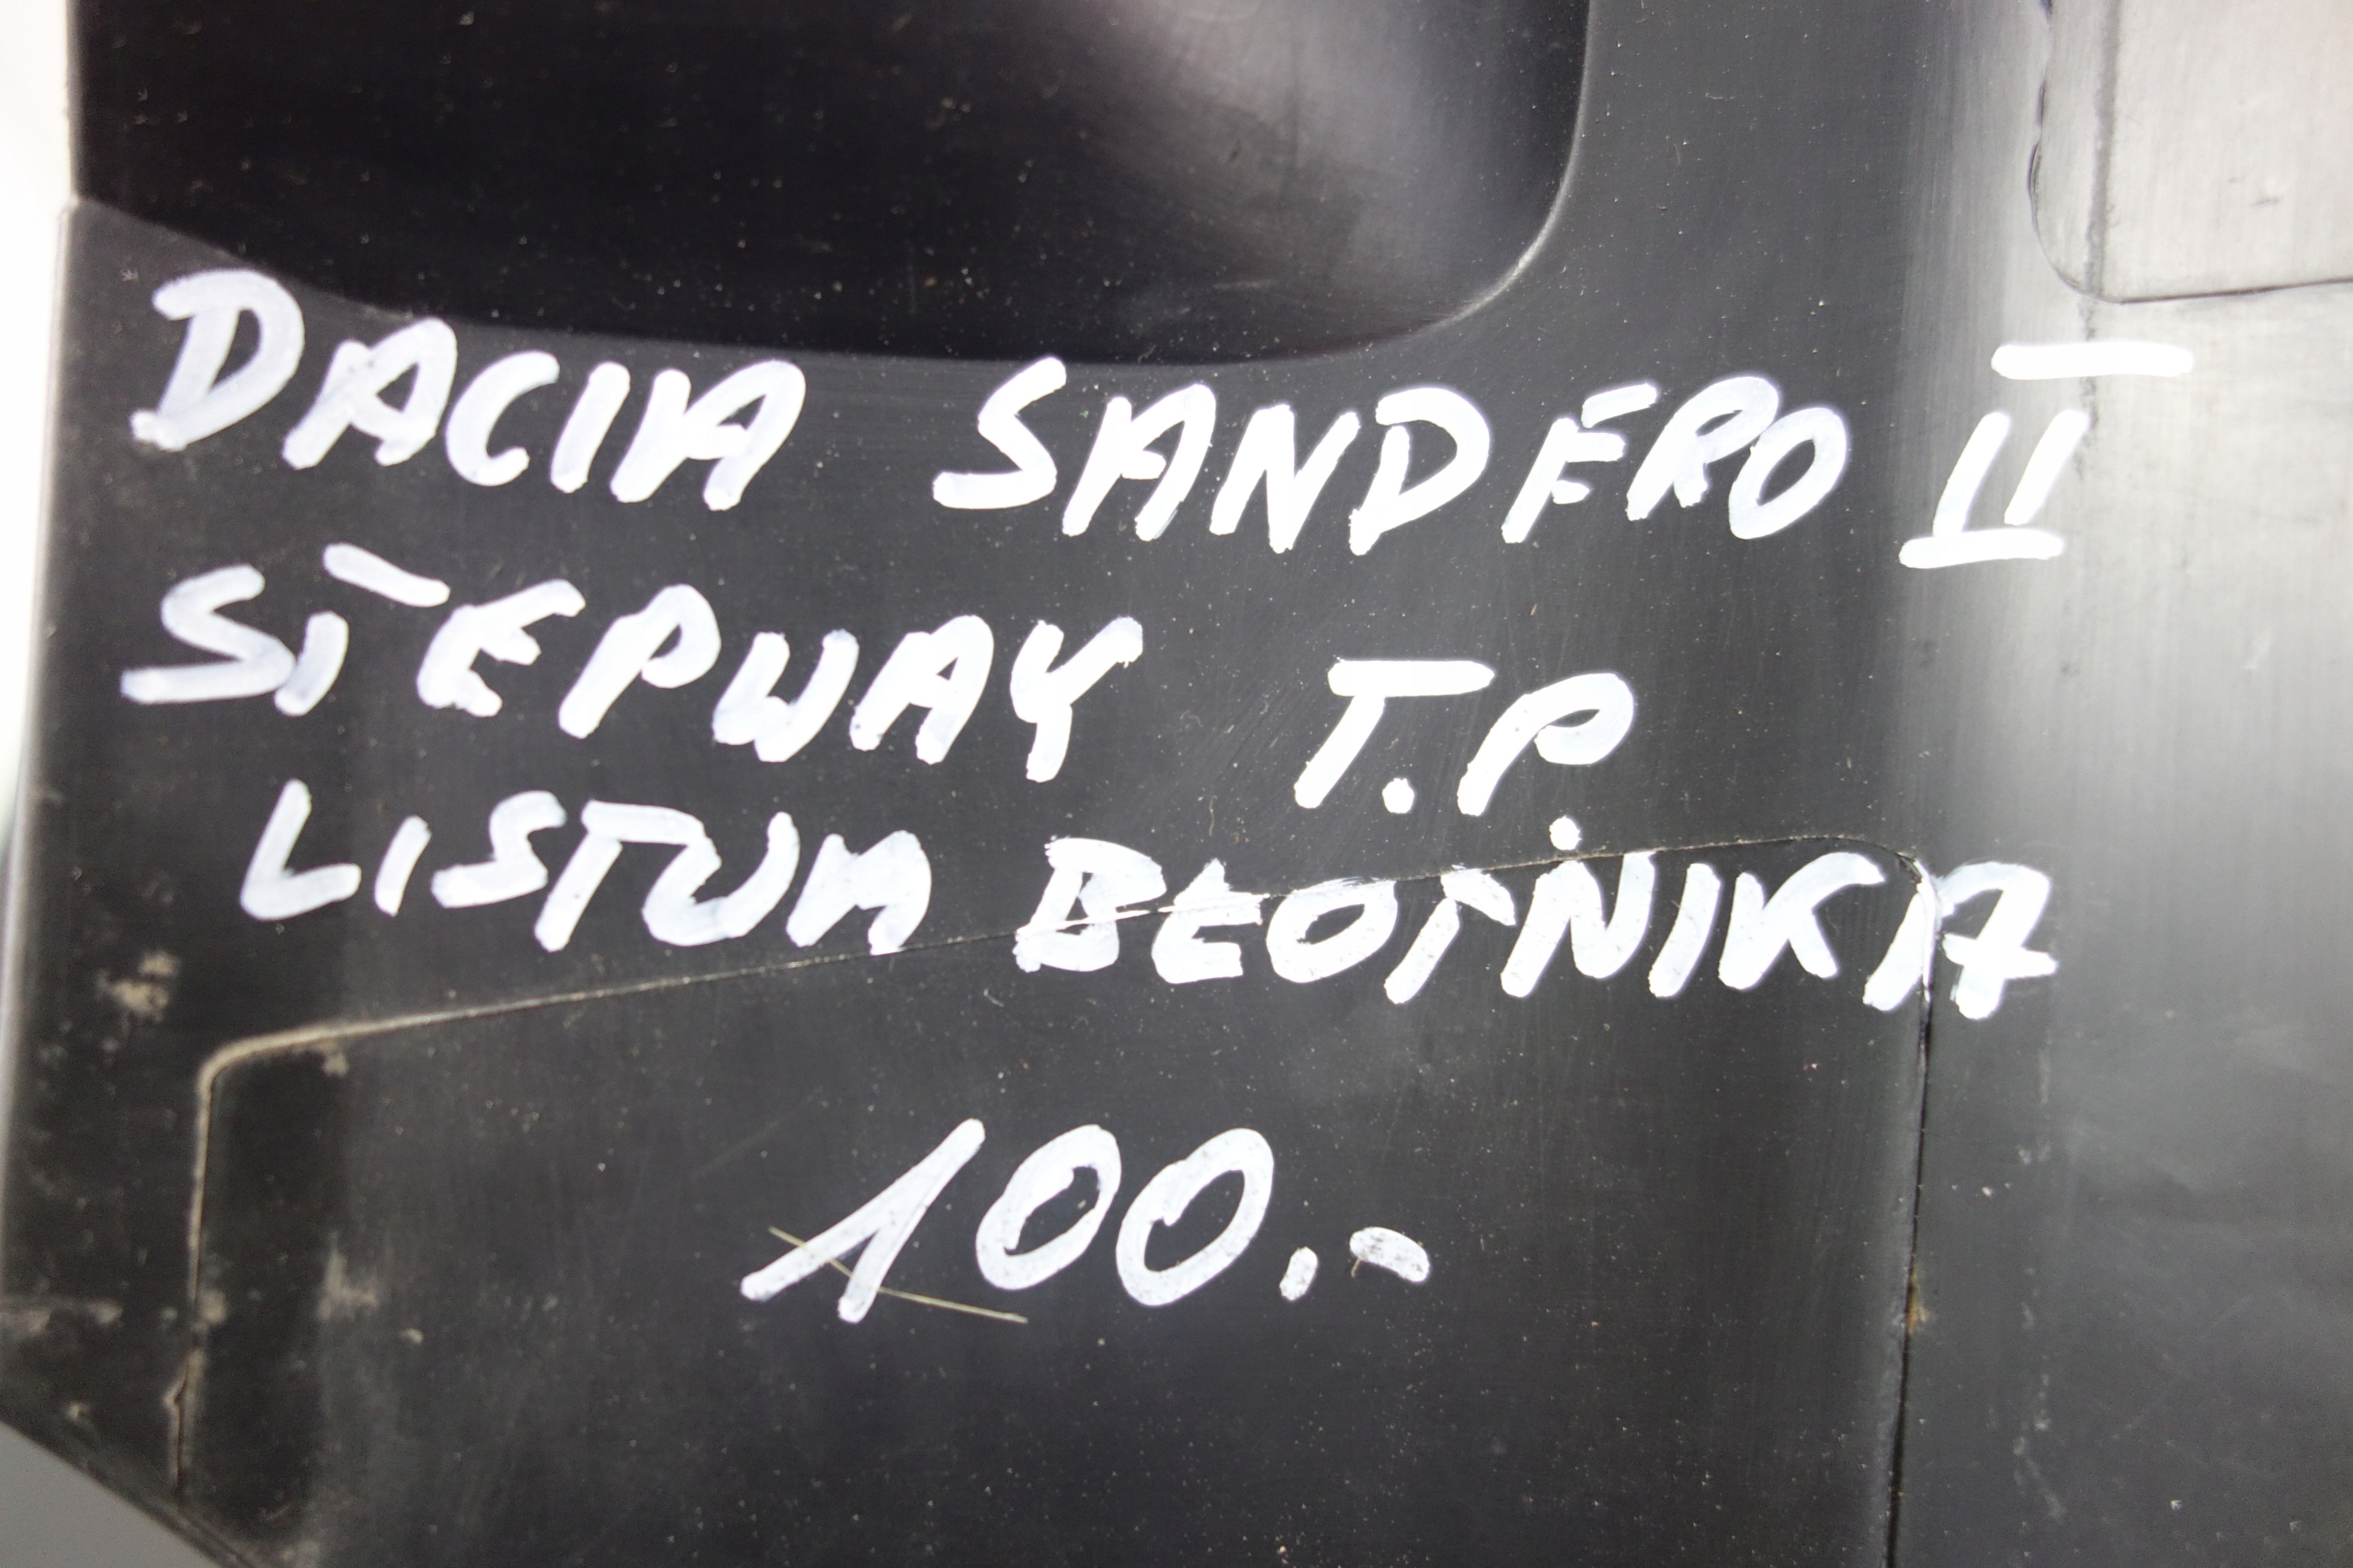 DACIA SANDERO II
STEPWAY T.P.
LISTWA BŁOTNIKA
100.-